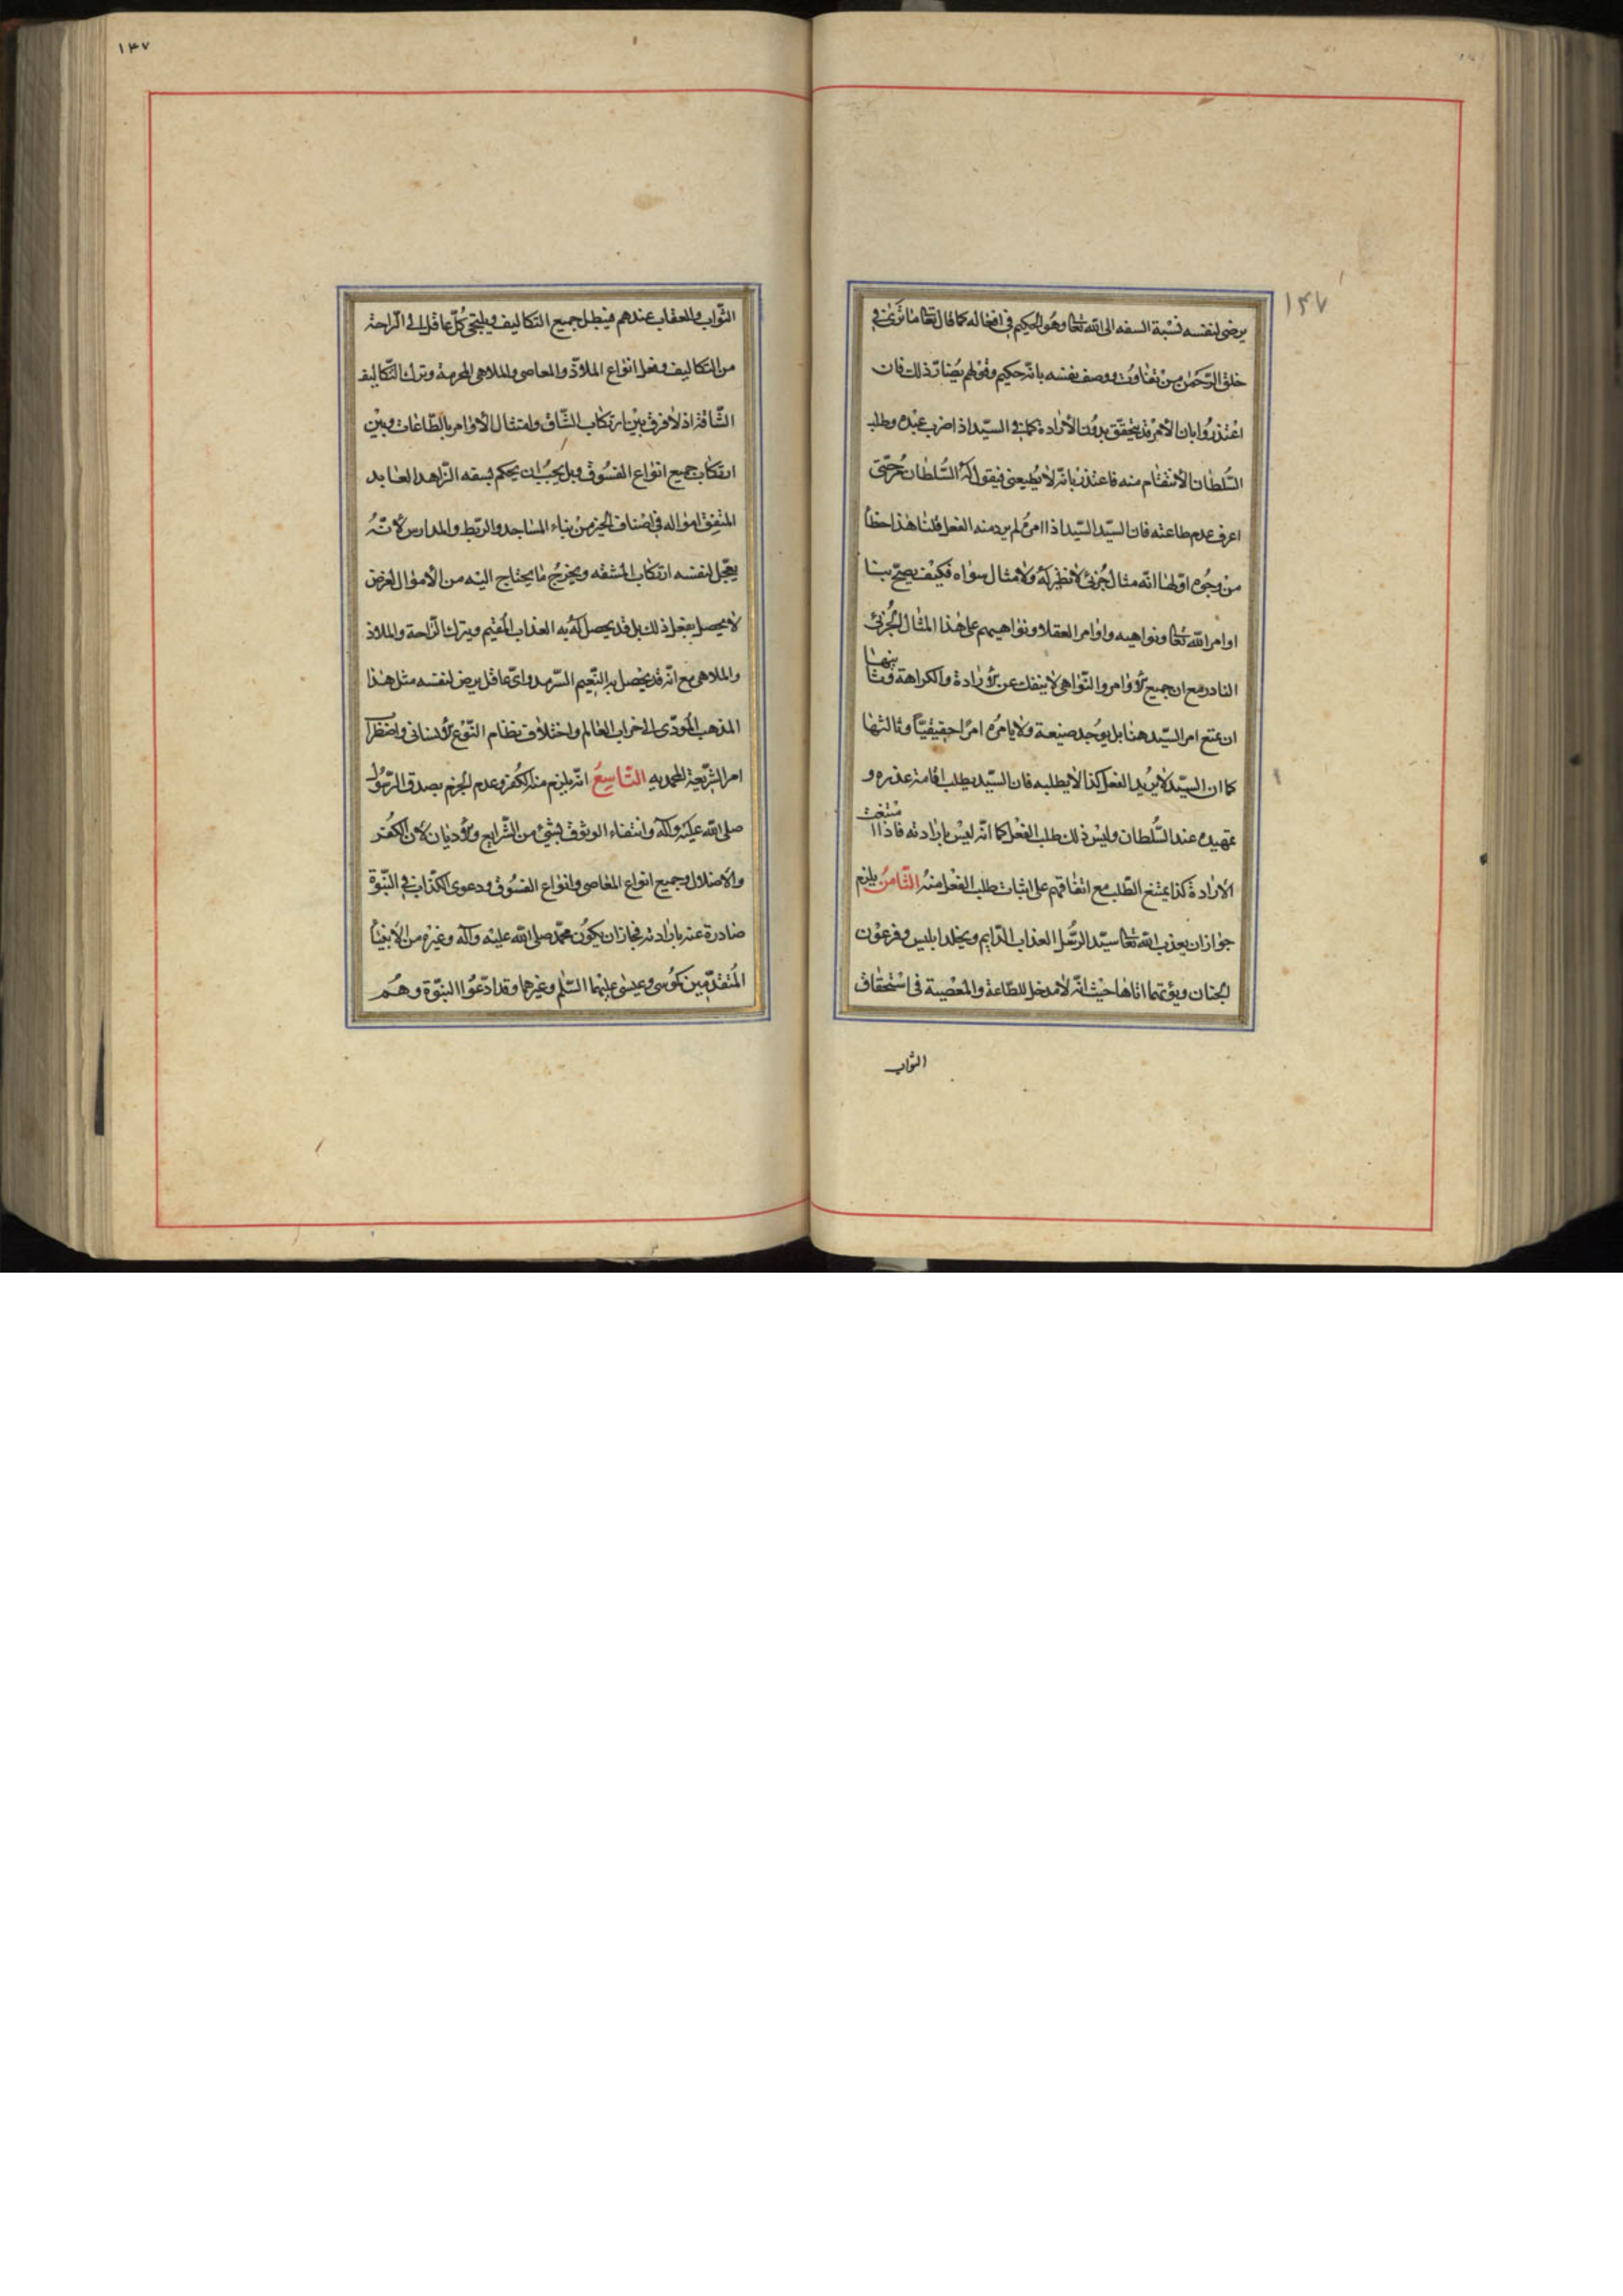 ١٤٧
يرضى لنفسه نسبة السفه الى الله تعا وهو الحكيم في افعاله كما قال تعا ما ترى في
خلق الرحمن من تفاوت ووصف نفسه بانه حكيم وقولهم يضاد ذلك فان
اعتذروا بان الامر قد يتحقق بدون الارادة كما في السيد اذا ضرب عبده وطلب
السلطان الانتقام منه فاعتذر بانه لا يطيعني فيقول له السلطان مر حتى
اعرف عدم طاعته فان السيد السيد اذا امره لم يرد منه الفعل قلنا هذا خطا
من وجوه اولها انه مثال جزئي لا نظير له ولا مثال سواه فكيف يصح بنا
اوامر الله تعا ونواهيه واوامر العقلا ونواهيهم على هذا المثال الجزئي
النادر مع ان جميع الاوامر والنواهي لا ينفك عن الارادة والكراهة وثا
نيها
ان نمنع امر السيد هنا بل يوجد صيغة ولا يامره امرا حقيقيا وثالثها
كما ان السيد لا يريد الفعل كذا لا يطلبه فان السيد يطلب اقامة عذره و
تمهيده عند السلطان وليس ذلك طلب الفعل كما انه ليس بارادته فاذا ا
نتفت
الارادة كذا يمتنع الطلب مع اتفاقهم على اثبات طلب الفعل منه الثامن يلزم
جواز ان يعذب الله تعا سيد الرسل العذاب الدايم ويخلد ابليس وفرعون
الجنان ويؤتهما اناها حيث انه لا مدخل للطاعة والمعصية في استحقاق
الثواب
١٤٧
الثواب والعقاب عندهم فيبطل جميع التكاليف ويلتجى كل عاقل الى الراحة
من التكاليف وفعل انواع الملاذ والمعاصي والملاهي المحرمة وترك التكاليف
الشاقة اذ لا فرق بين ارتكاب الشاق وامتثال الاوامر بالطاعات وبين
ارتكاب جميع انواع الفسوق وبل يجب ان يحكم بسفه الزاهد العابد
المنفق امواله في اصناف الخير من بناء المساجد والربط والمدارس لانه
يعجل لنفسه ارتكاب المشقه ويخرج ما يحتاج اليه من الاموال لغرض
لا يحصل بفعل ذلك بل قد يحصل له به العذاب المقيم ويترك الراحة والملاذ
والملاهي مع انه قد يحصل به النعيم السرمد واي عاقل يرض لنفسه مثل هذا
المذهب المودى الى خراب العالم واختلاف نظام النوع الانساني واضطرا
امر الشريعة المحمديه التاسع انه يلزم منه الكفر وعدم الجزم بصدق الرسول
صلى الله عليه وآله وانتفاء الوثوق بشئ من الشرايع والاديان لان الكفر
والاضلال وجميع انواع المعاصي وانواع الفسوق ودعوى الكذاب في النبوة
صادرة عنه بارادته فجاز ان يكون محمد صلى الله عليه وآله وغيره من الانبيا
المتقدمين كموسى وعيسى عليهما السلم وغيرهما وقد ادعوا النبوة وهم